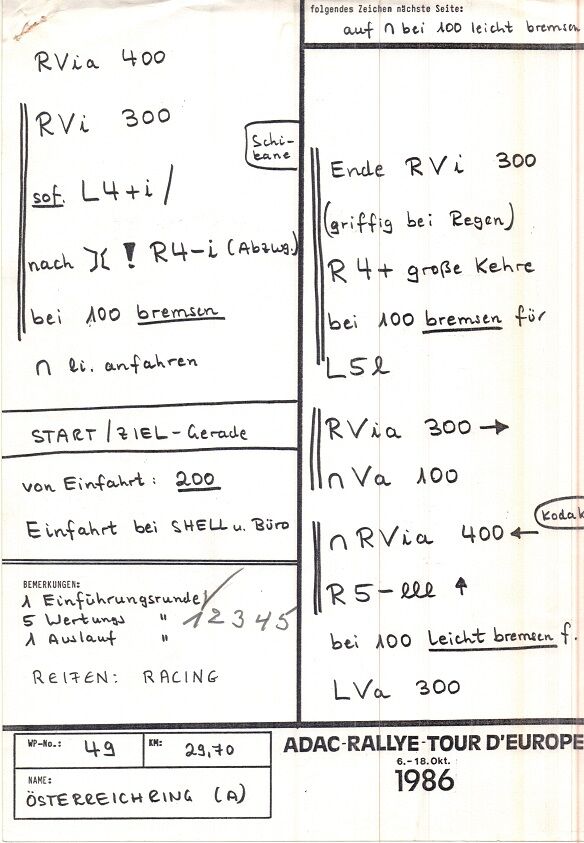 RVia 400
RVi 300
Schi-
kane
sof. L4+i/
nach )( ! R4-i (Abzwg.)
bei 100 bremsen
∩ li. anfahren
START/ZIEL-Gerade
von Einfahrt: 200
Einfahrt bei SHELL u. Büro
BEMERKUNGEN:
1 Einführungsrunde /
5 Wertungs " 1 2 3 4 5
1 Auslauf "
REIFEN: RACING
folgendes Zeichen nächste Seite:
auf ∩ bei 100 leicht bremsen
Ende RVi 300
(griffig bei Regen)
R 4+ große Kehre
bei 100 bremsen für
L5l
RVia 300 →
∩ Va 100
Kodak
∩ RVia 400 ←
R 5-lll ↑
bei 100 Leicht bremsen f.
LVa 300
WP-No.: 49 KM: 29,70
NAME:
ÖSTERREICHRING (A)
ADAC-RALLYE-TOUR D'EUROPE
6.-18.Okt.
1986